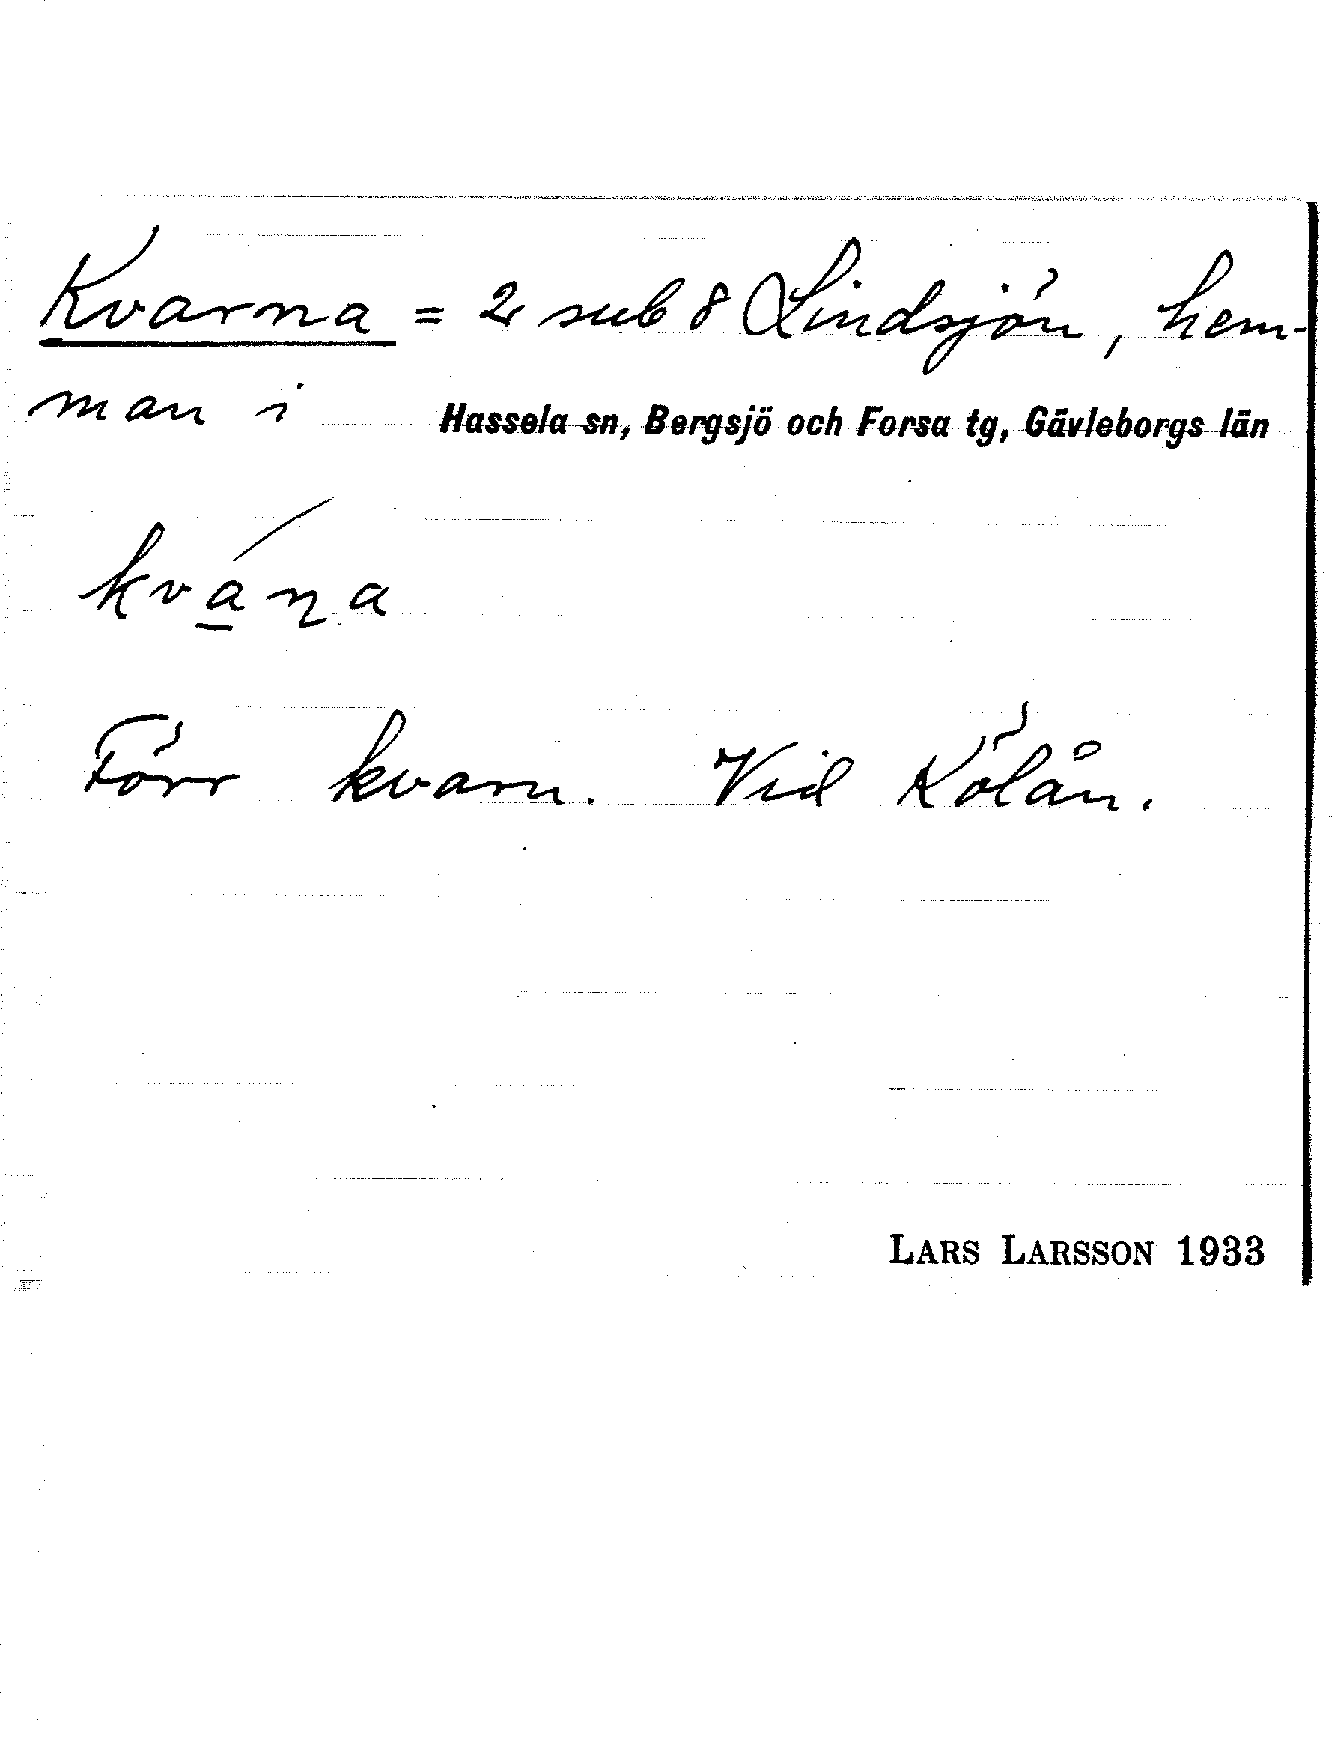 Kvarna = 2 sub 8 Lindsjön, hem-
man i Hassela sn, Bergsjö och Forsa tg, Gävleborgs län
kváɳa
Förr kvarn. Vid Kölån.
LARS LARSSON 1933